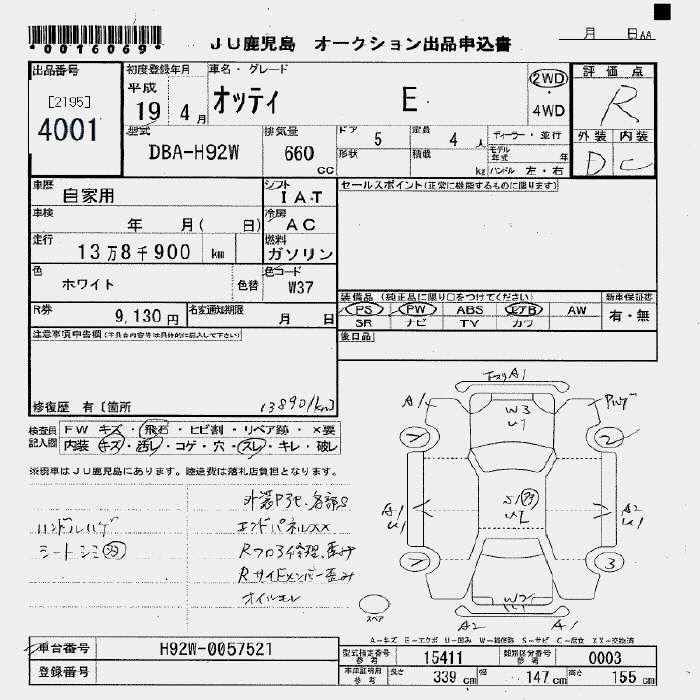 *0016069*
JU鹿児島 オークション出品申込書
月 日AA
出品番号
[2195]
4001
初度登録年月
平成
19 4月
車名・グレード
オッティ E
2WD
・
4WD
評価点
R
外装 内装
D C
型式
DBA-H92W
排気量
660
cc
ドア 5
定員 4 人
ディーラー・並行
形状
積載 kg
モデル年式 年
ハンドル 左・右
車歴
自家用
シフト
IAT
セールスポイント(正常に機能するものに限ります)
車検
年 月( 日)
冷房
AC
走行
13万8千900 km
燃料
ガソリン
色
ホワイト
色替
色コード
W37
装備品 (純正品に限り○をつけてください)
新車保証書
PS PW ABS エアB AW
有・無
SR ナビ TV カワ
R券
9,130円
名変通知期限
月 日
後日品
注意事項申告欄(不具合内容等は具体的に記入して下さい)
修復歴 有〔箇所
138901km〕
検査員
記入欄
FW キズ・飛石・ヒビ割・リペア跡・×要
内装 キズ・汚レ・コゲ・穴・スレ・キレ・破レ
※現車はJU鹿児島にあります。陸送費は落札店負担となります。
外装P3セ、各部S
ハンドルハゲ
エンドパネルXX
シートシミ
Rフロア修理、歪み
Rサイドメンバー歪み
オイルモレ
A1
A1
W3
U1
2
A1
U1
A2
U1
3
W2
スペア
A2
A1
A－キズ E－エクボ U－凹み W－補修跡 S－サビ C－腐食 XX－交換済
車台番号
H92W-0057521
型式指定番号
参考
15411
類別区分番号
参考
0003
登録番号
車庫証明用
参考
長さ
339 cm
幅
147 cm
高さ
155 cm